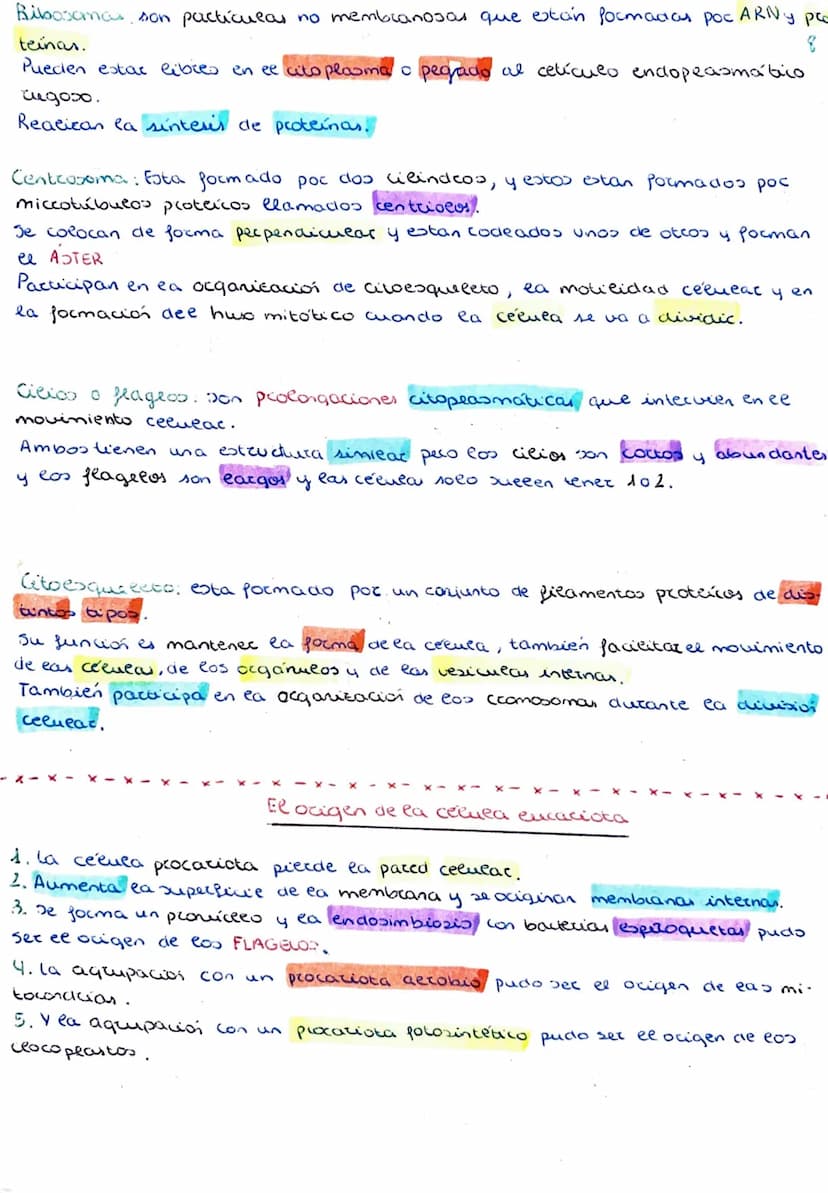 Ribosomas. son partículas no membranosas que están formadas por ARN y pro
teínas.
Pueden estar libres en el citoplasma o pegado al retículo endoplasmático
rugoso.
Realizan la síntesis de proteínas.
Centrosoma: Esta formado por dos cilindros, y estos estan formados por
microtúbulos proteicos llamados centriolos.
Se colocan de forma perpendicular y estan rodeados unos de otros y forman
el ÁSTER
Participan en la organización de citoesqueleto, la motilidad celular y en
la formación del huso mitótico cuando la célula se va a dividir.
Cilios o flagelos. Son prolongaciones citoplasmáticas que intervien en el
movimiento celular.
Ambos tienen una estructura similar pero los cilios son cortos y abundantes
y los flagelos son largos y las célula solo suelen tener 1 o 2.
Citoesqueleto: esta formado por un conjunto de filamentos proteicos de dis-
tintos tipos.
Su función es mantener la forma de la célula, también facilitar el movimiento
de las células, de los orgánulos y de las vesículas internas.
También participa en la organización de los cromosomas durante la división
celular.
El origen de la célula eucariota
1. La célula procariota pierde la pared celular.
2. Aumenta la superficie de la membrana y se originan membranas internas.
3. Se forma un pronúcleo y la endosimbiosis con bacterias espiroquetas pudo
ser el origen de los FLAGELOS.
4. La agrupación con un procariota aerobio pudo ser el origen de las mi-
tocondrias.
5. Y la agrupación con un procariota fotosintético pudo ser el origen de los
cloroplastos.